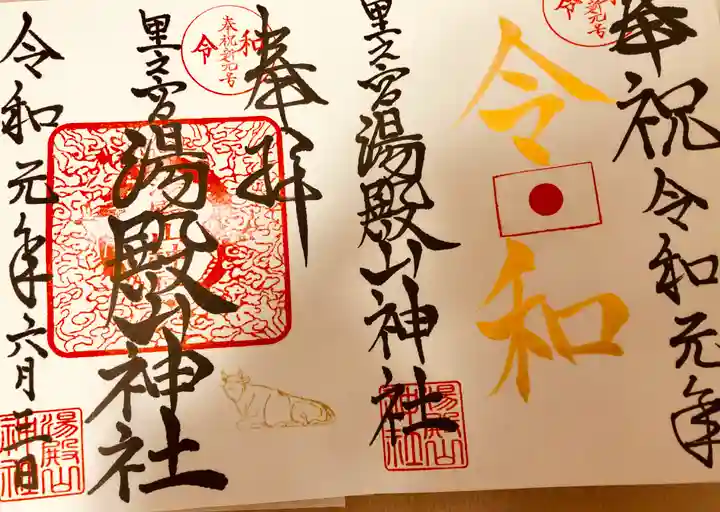 奉祝令和元年
奉祝新元号
令和
令和
里之宮湯殿山神社
湯殿山神社
奉拝
奉祝新元号
令和
里之宮湯殿山神社
令和元年六月三日
湯殿山神社